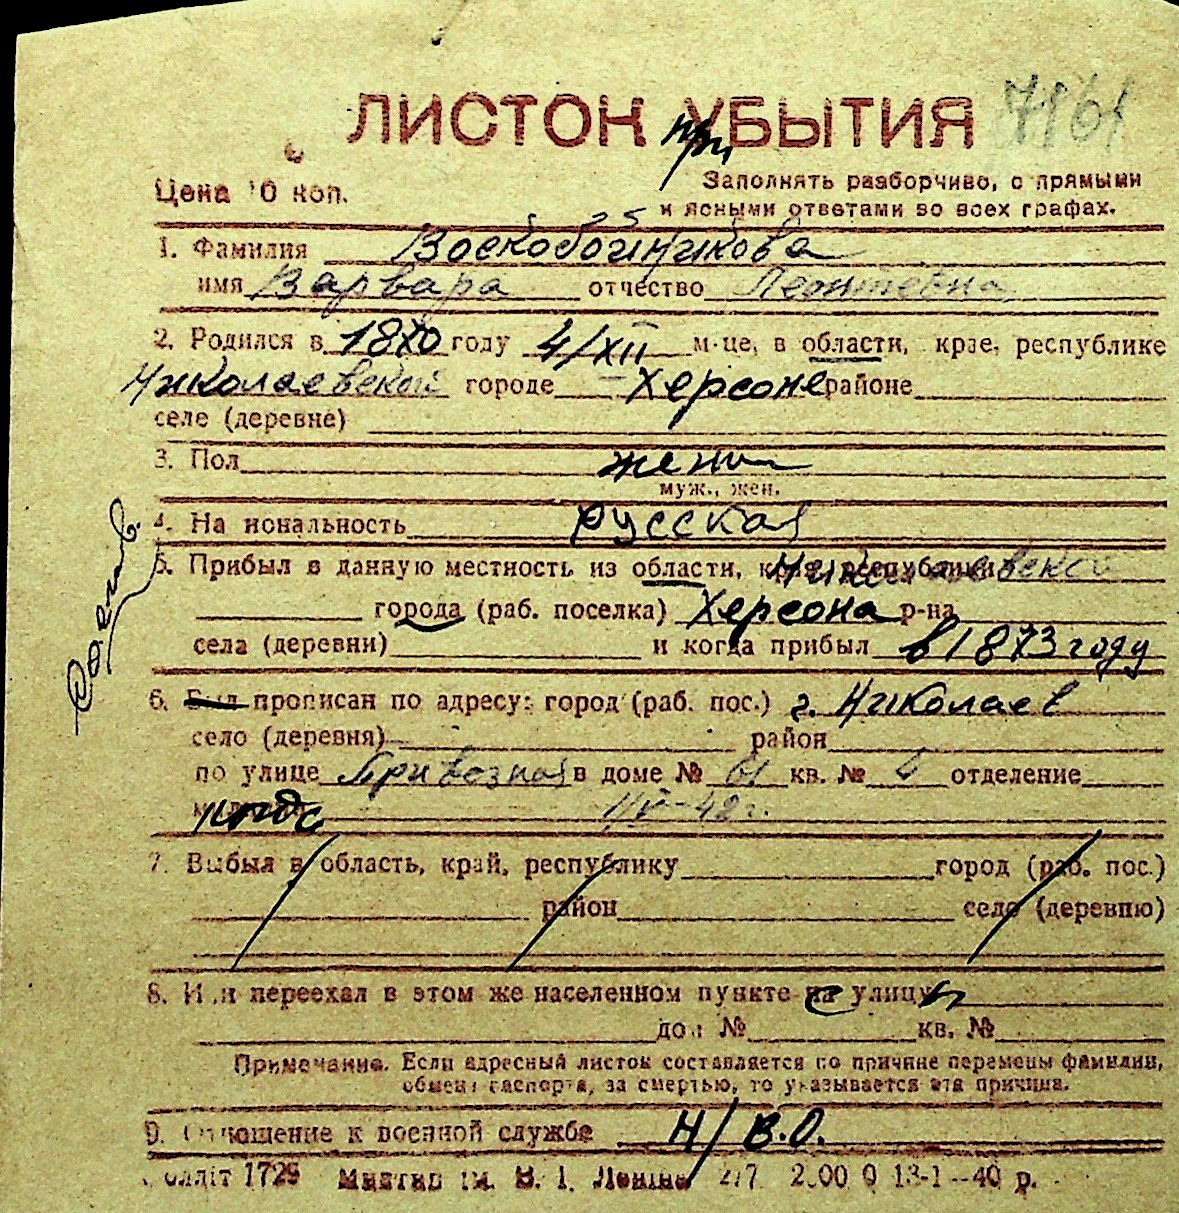 ЛИСТОК УБЫТИЯ
при
Цена 10 коп.
Заполнять разборчиво, с прямыми
и ясными ответами во всех графах.
1. Фамилия Воскобойникова
имя Варвара отчество Леонтевна
2. Родился в 1870 году 4/XII м-це, в области, крае, республике
Николаевской городе Херсоне районе
селе (деревне)
3. Пол женск
муж., жен.
4. На иональность русская
5. Прибыл в данную местность из области, края, республики Николаевской
города (раб. поселка) Херсона р-на
села (деревни) и когда прибыл в 1873 году
6. Был прописан по адресу: город (раб. пос.) г. Николаев
село (деревня) район
по улице Привозная в доме № 61 кв. № отделение
42 г.
7. Выбыл в область, край, республику город (раб. пос.)
район село (деревню)
8. И и переехал в этом же населенном пункте с улицы
дом № кв. №
Примечание. Если адресный листок составляется по причине перемены фамилии,
обмена паспорта, за смертью, то указывается эта причина.
9. Отношение к военной службе Н/В.О.
олліт 1729 ім. В. І. Леніна 13-1--40 р.